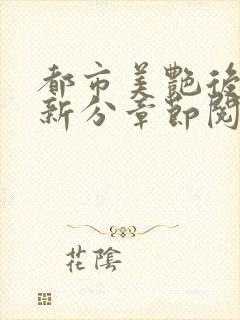 都市美艷後
新分章節閱
花陰